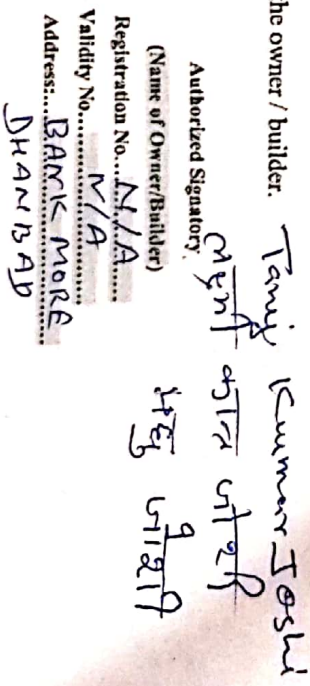 he owner / builder. Tanuj Kumar Joshi
Authorized Signatory
जोशी
(Name of Owner/Builder)
मधु जोशी
Registration No....N/A......
Validity No......N/A
Address:....BANK MORE
DHANBAD